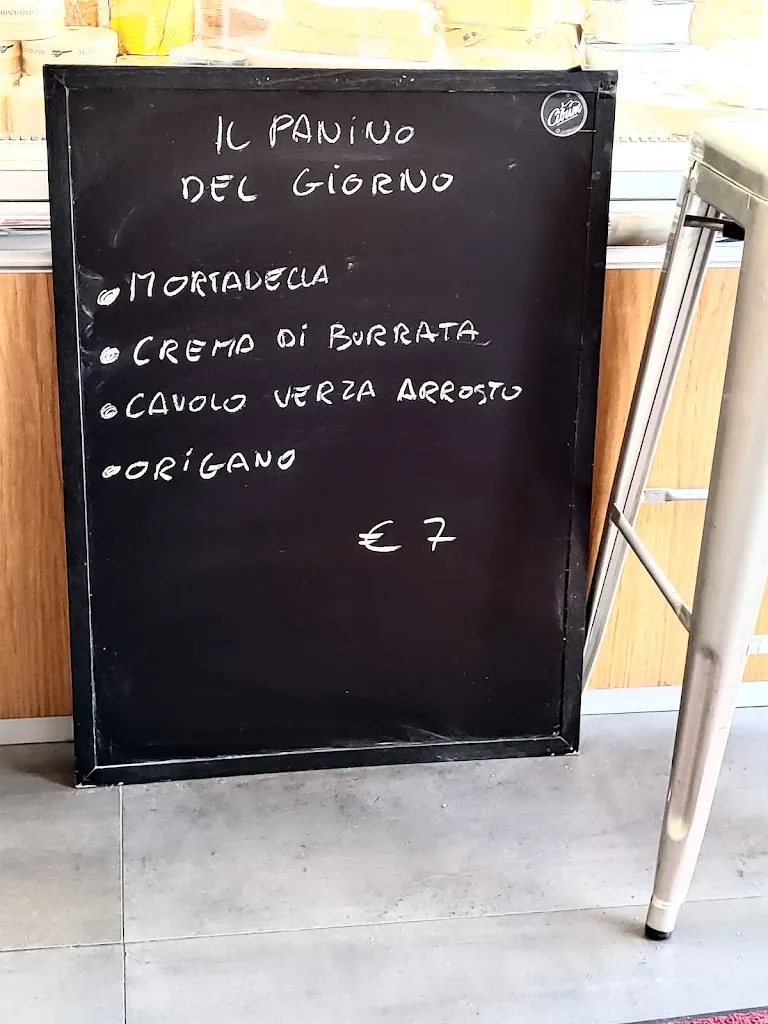 Cibum
IL PANINO
DEL GIORNO
MORTADELLA
CREMA DI BURRATA
CAVOLO VERZA ARROSTO
ORIGANO
€ 7